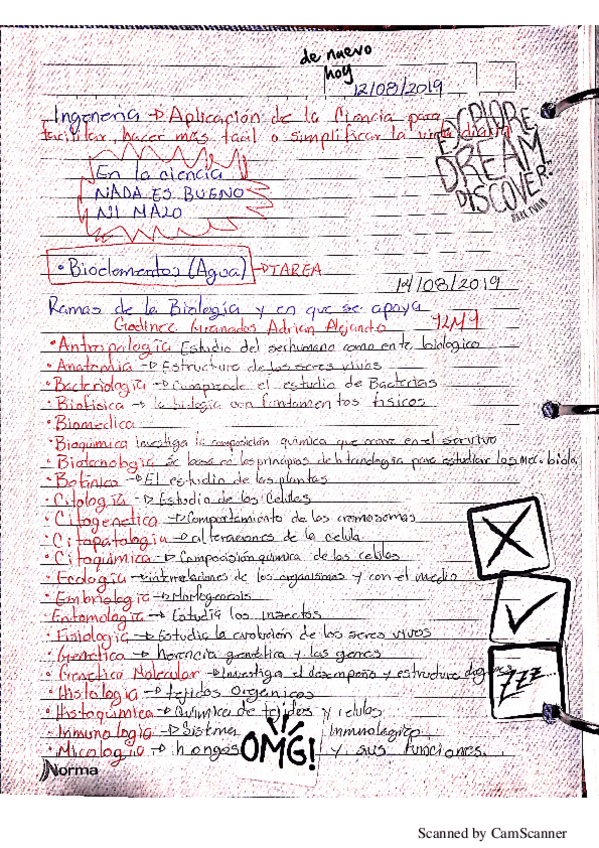 de nuevo
hoy
12/08/2019
Ingeneria → Aplicación de la Ciencia para
facilitar, hacer más facil o simplificar la vida diaria
EXPLORE.
DREAM.
DISCOVER.
En la ciencia
NADA ES BUENO
NI MALO
• Bioelementos (Agua) → TAREA
14/08/2019
Ramas de la Biología y en que se apoya
Godinez Granados Adrian Alejandro
• Antropología Estudio del ser humano como ente biologico
• Anatomia → Estructura de los seres vivos
• Bacteriologia → Comprende el estudio de Bacterias
• Biofisica → la biologia con fundamentos fisicos
• Biomedica
• Bioquimica investiga la composición química que ocurre en el ser vivo
• Biotecnologia se basa en los principios de la tecnología para estudiar los biola
• Botánica → El estudio de las plantas
• Citología → Estudio de las Celulas
• Citogenetica → Comportamiento de los cromosomas
• Citopatologia → alteraciones de la celula
• Citoquimica → Composición quimica de las celulas
• Ecologia → interrelaciones de los organismos y con el medio
• Embriologia → Morfogenesis
Entomologia → Estudia los insectos
• Fisiologia → Estudia la evolución de los seres vivos
• Genetica → herencia genética y los genes
• Genetica Molecular → Investiga el desempeño y estructura de genes
• Histologia → tejidos Organicos
• Histoquimica → Quimica de tejidos y celulas
• Inmunologia → Sistema Inmunologico
• Micologia → hongos y sus funciones.
OMG!
zzz
Norma
Scanned by CamScanner